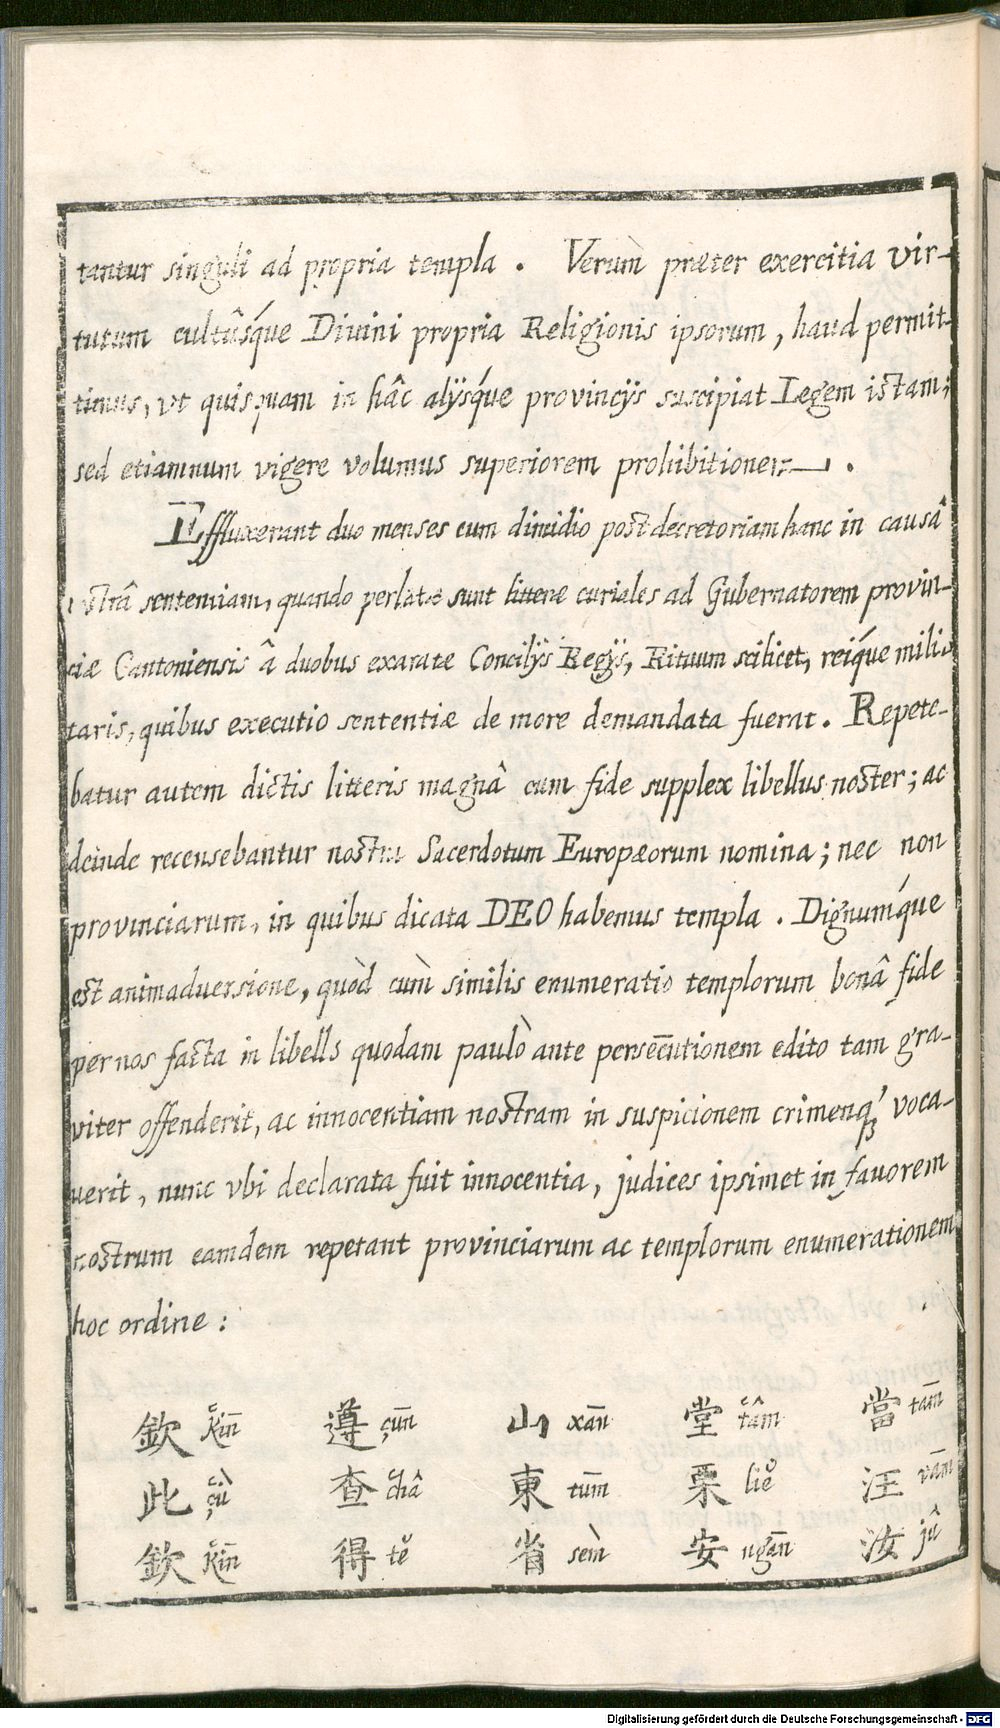 tantur singuli ad propria templa . Verùm præter exercitia vir-
tutum cultûsq́ue Divini propria Religionis ipsorum, haud permit-
timus, vt quisquam in hâc alijsq́ue provincijs suscipiat Legem istam;
sed etiamnum vigere volumus superiorem prohibitionem .
Effluxerunt duo menses cum dimidio post decretoriam hanc in causâ
nostrâ sententiam, quando perlatæ sunt litteræ curiales ad Gubernatorem provin-
ciæ Cantoniensis â duobus exaratæ Concilijs Regijs, Rituum scilicet, reiq́ue mili-
taris, quibus executio sententiæ de more demandata fuerat. Repete-
batur autem dictis litteris magnâ cum fide supplex libellus noster; ac
deinde recensebantur nostra Sacerdotum Europæorum nomina; nec non
provinciarum, in quibus dicata DEO habemus templa . Dignumq́ue
est animadversione, quòd cùm similis enumeratio templorum bonâ fide
per nos facta in libello quodam paulò ante persecutionem edito tam gra-
viter offenderit, ac innocentiam nostram in suspicionem crimenq́ꝫ voca-
verit, nunc vbi declarata fuit innocentia, judices ipsimet in favorem
nostrum eamdem repetant provinciarum ac templorum enumerationem
hoc ordine :
當 tām
汪 vām
汝 jû
堂 ťâm
栗 liě
安 ngān
山 xān
東 tūm
省 sèm
遵 çūn
查 čhâ
得 tě
欽 ǩīn
此 çù
欽 ǩīn
Digitalisierung gefördert durch die Deutsche Forschungsgemeinschaft - DFG